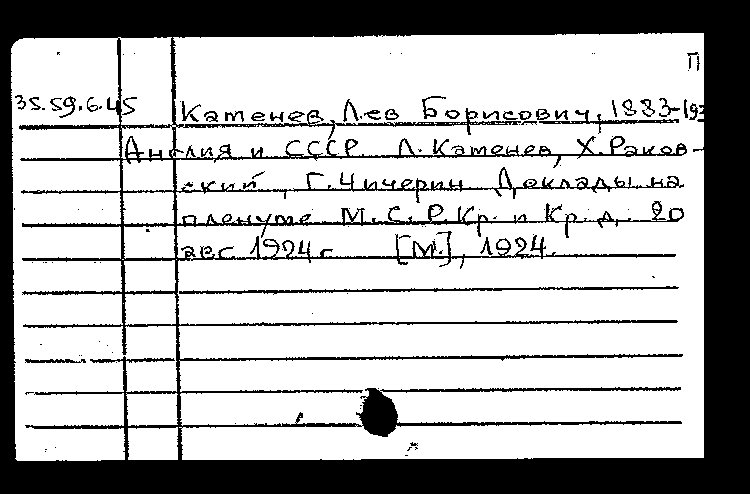 П
35.59.6.45 Каменев, Лев Борисович, 1883-193
Англия и СССР. Л. Каменев, Х. Раков-
ский, Г. Чичерин. Доклады на
пленуме М.С.Р.Кр. и Кр.д. 20
авг 1924 г. [М.], 1924.